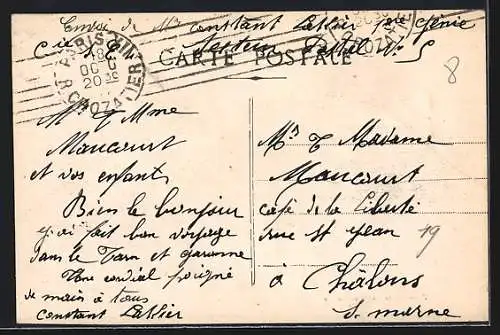 Envoi de Mr constant Lablier 1ère Génie
Cie
CARTE POSTALE
PARIS
R. CROZATIER
Mr & Mme
Maucourt
et vos enfants
Bien le bonjour
j'ai fait bon voyage
dans le Tarn et garonne
Une cordial poigné
de main à tous
constant Lablier
8
Mr & Madame
Maucourt
café de la Liberté
rue St Jean 19
à Châlons
s. marne